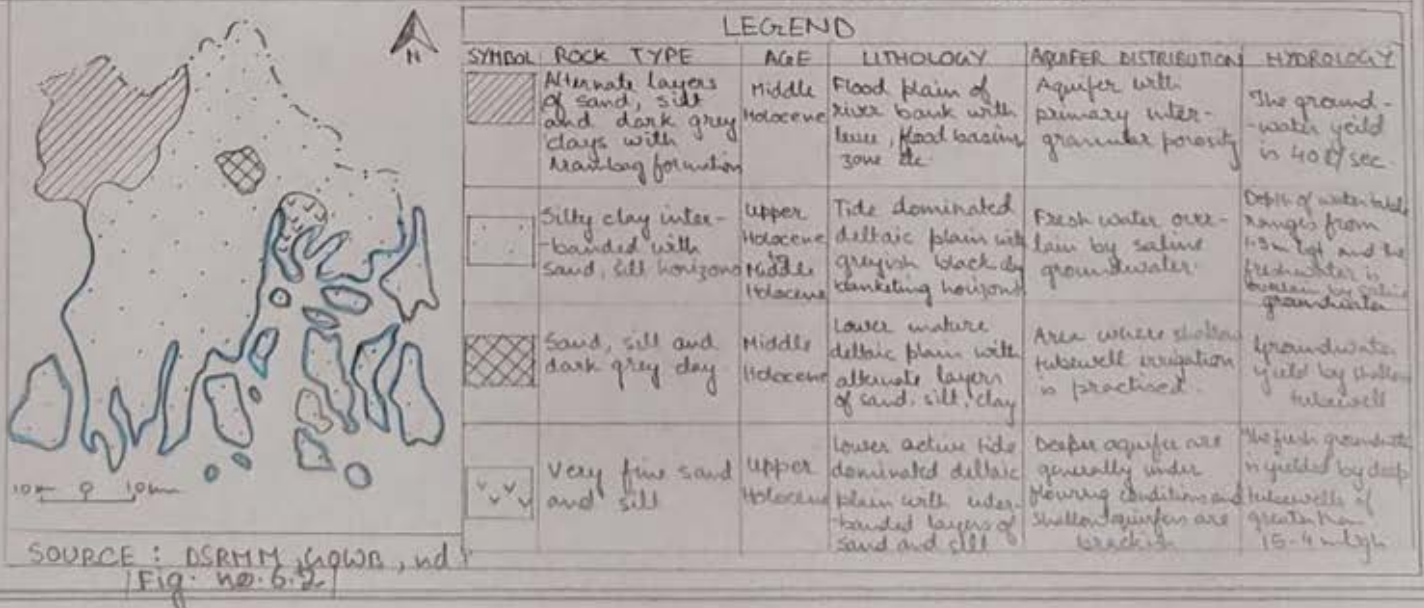 N
LEGEND
SYMBOL ROCK TYPE AGE LITHOLOGY AQUIFER DISTRIBUTION HYDROLOGY
Alternate layers
of sand, silt
and dark grey
clays with
formation
Middle
Holocene
Flood plain of
river bank with
levee, flood basins
zone etc.
Aquifer with
primary inter-
granular porosity
The ground-
-water yeild
is 40 l/sec.
Silty clay inter-
-banded with
sand, silt horizons
Upper
Holocene
to
Middle
Holocene
Tide dominated
deltaic plain with
greyish black clay
banketing horizons
Fresh water over-
lain by saline
groundwater.
Depth of water table
ranges from
and the
freshwater is
overlain by saline
groundwater
Sand, silt and
dark grey clay
Middle
Holocene
Lower mature
deltaic plain with
alternate layers
of sand, silt, clay
Area where shallow
tubewell irrigation
is practised.
Groundwater
yield by shallow
tubewell
Very fine sand
and silt
Upper
Holocene
Lower active tide
dominated deltaic
plain with inter-
-banded layers of
sand and silt
Deeper aquifer are
generally under
flowing conditions and
shallow aquifers are
brackish
The fresh groundwater
is yielded by deep
tubewells of
greater than
10 km 0 10 km
SOURCE : DSRMM, GOWB, nd
Fig. no. 6.2